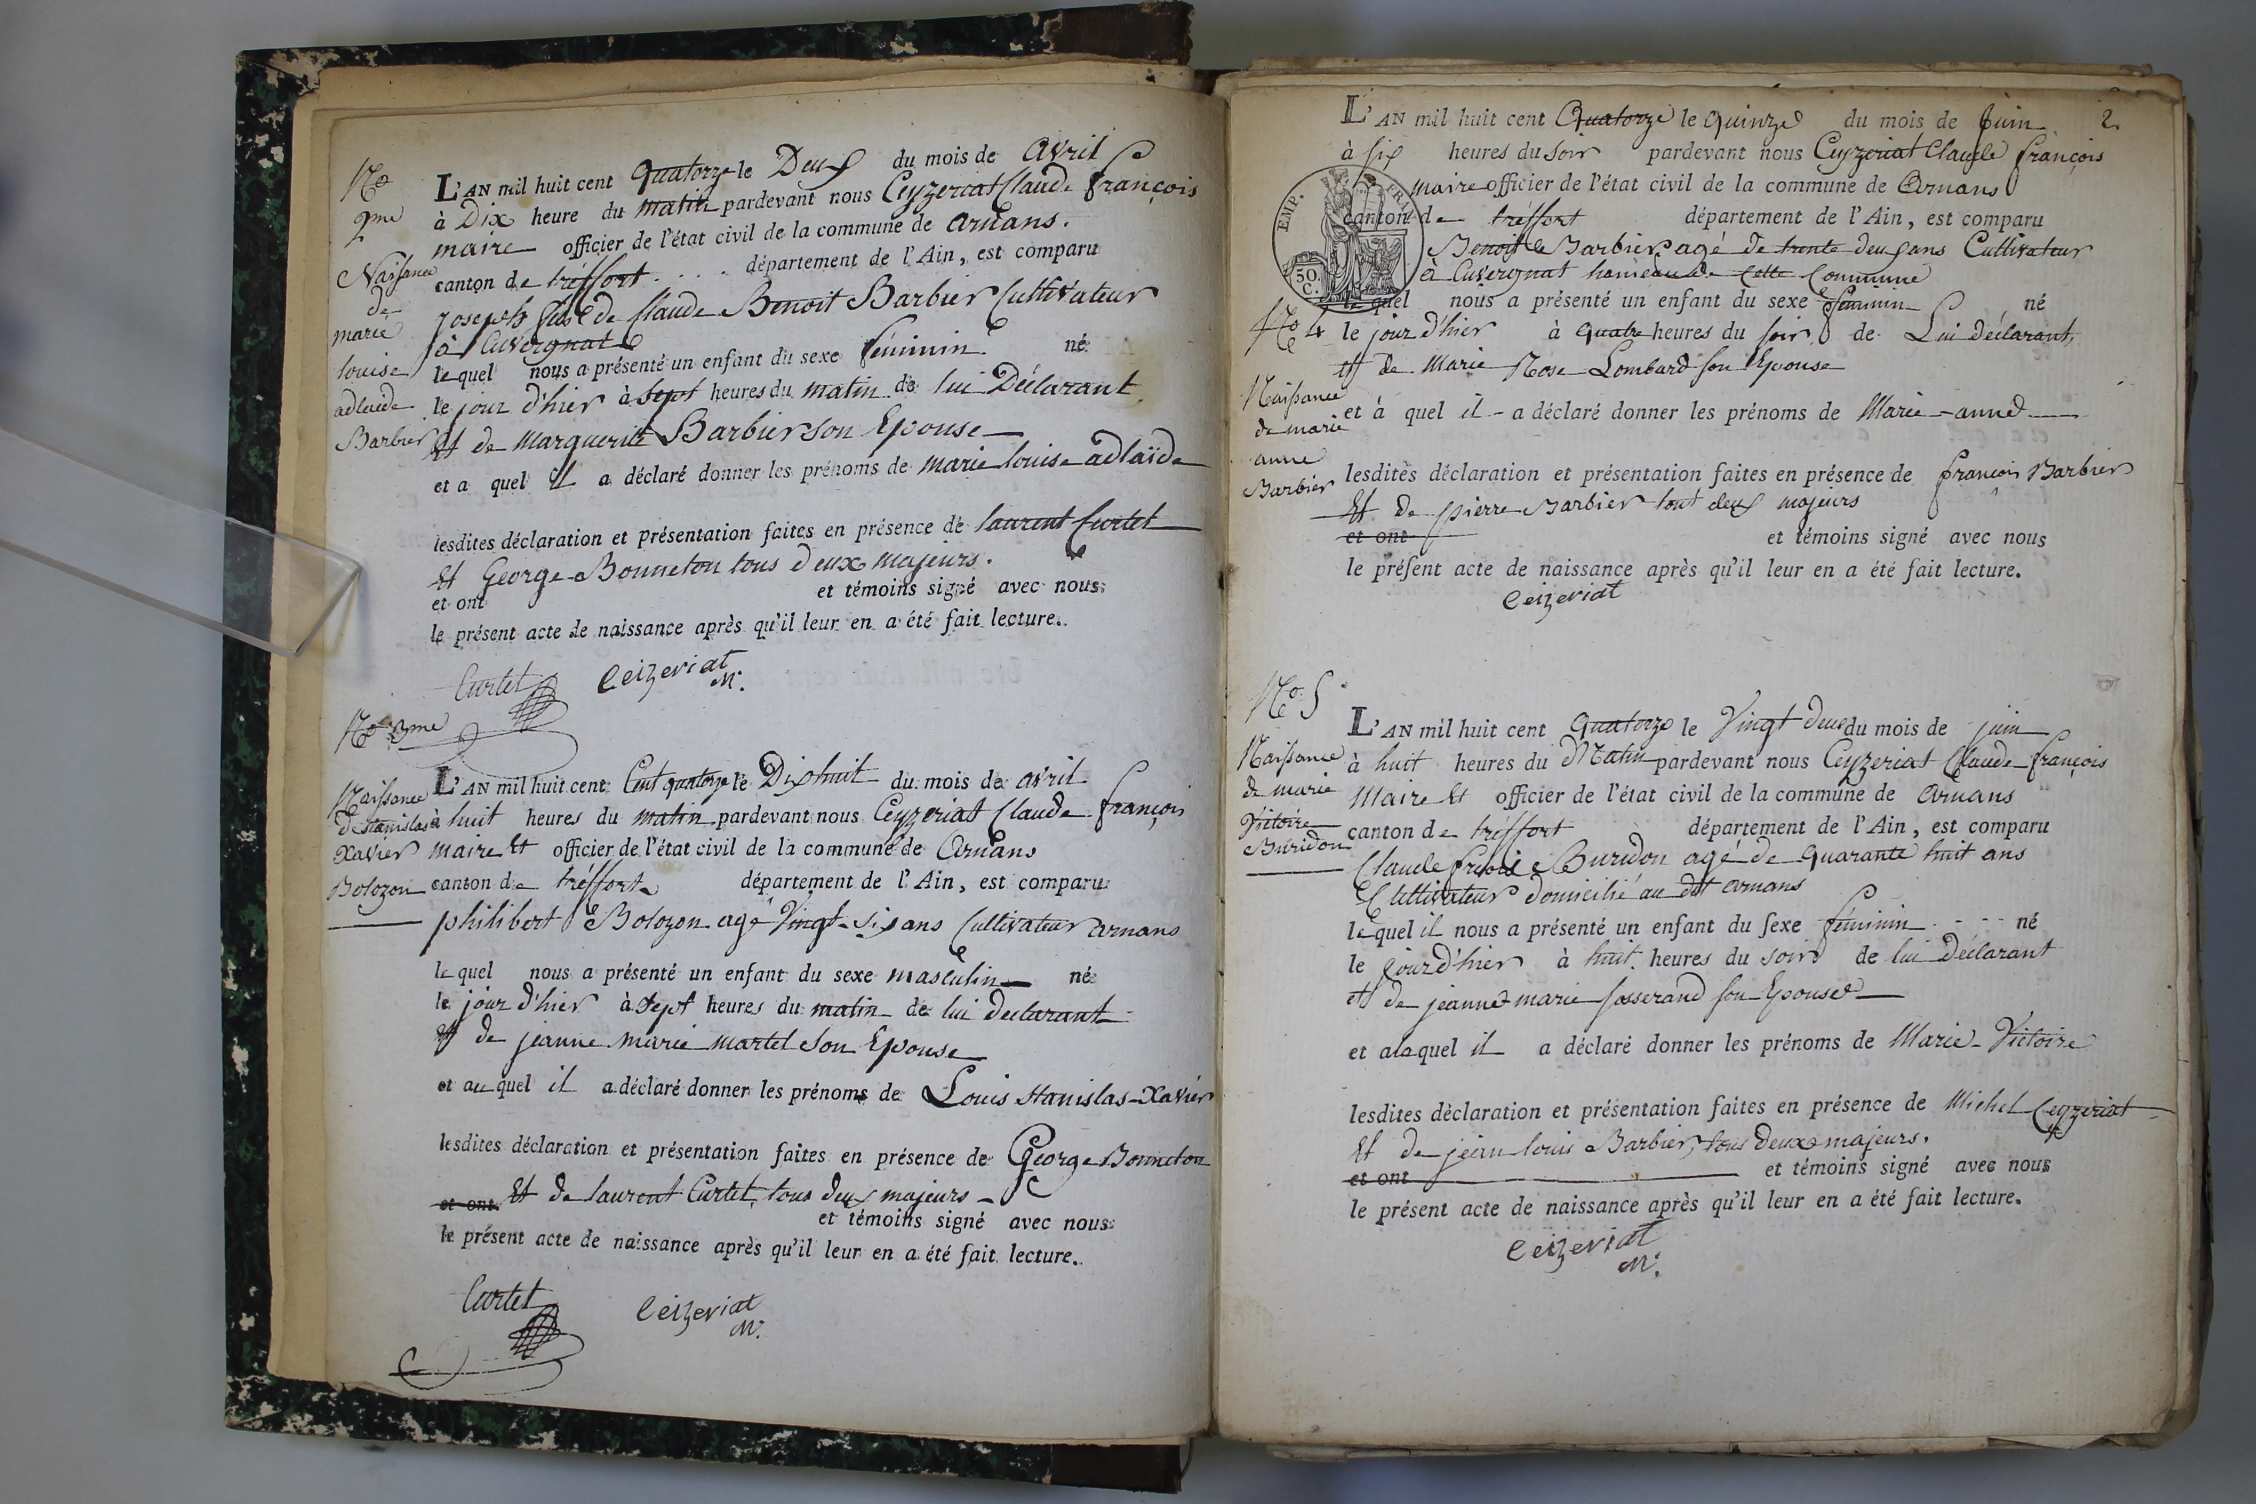 No
2me
Naissance
de
marie
louise
adlaide
Barbier
L'AN mil huit cent quatorze le Deux du mois de avril
à Dix heure du matin pardevant nous Ceyzeriat Claude françois
maire officier de l'état civil de la commune de arnans.
canton de tréffort département de l'Ain, est comparu
joseph fils de Claude Benoit Barbier Cultivateur
à Cuvergnat
lequel nous a présenté un enfant du sexe féminin né
le jour d'hier à sept heures du matin de lui Déclarant
Et de marguerite Barbier son Epouse
et a quel il a déclaré donner les prénoms de marie louise adlaïde
lesdites déclaration et présentation faites en présence de laurent Curtet
Et George Bonneton tous deux majeurs.
et ont et témoins signé avec nous
le présent acte de naissance après qu'il leur en a été fait lecture.
Curtet Ceizeriat
M.
No 3me
Naissance
de stanislas
Xavier
Bolozon
L'AN mil huit cent Cent quatorze le Dixhuit du mois de avril
à huit heures du matin pardevant nous Ceyzeriat Claude françois
maire Et officier de l'état civil de la commune de Arnans
canton de tréffort département de l'Ain, est comparu
philibert Bolozon agé Vingt-six ans Cultivateur arnans
lequel nous a présenté un enfant du sexe masculin né
le jour d'hier à sept heures du matin de lui declarant
Et de jeanne marie martel son Epouse
et au quel il a déclaré donner les prénoms de Louis stanislas-Xavier
lesdites déclaration et présentation faites en présence de George Bonneton
et ont Et de laurent Curtet, tous deux majeurs
et témoins signé avec nous
le présent acte de naissance après qu'il leur en a été fait lecture.
Curtet Ceizeriat
M.
2
L'AN mil huit cent Quatorze le Quinze du mois de Juin
à six heures du soir pardevant nous Ceyzeriat Claude françois
maire officier de l'état civil de la commune de Arnans
canton de tréffort département de l'Ain, est comparu
EMP. FRAN
50.
C.
Benoit Barbier agé de trente deux ans Cultivateur
à Cuvergnat hameau de Cette Commune
lequel nous a présenté un enfant du sexe féminin né
No 4
le jour d'hier à quatre heures du soir de Lui déclarant,
et de Marie Rose Lombard son Epouse
Naissance
de marie
anne
Barbier
et à quel il a déclaré donner les prénoms de Marie-anne
lesdites déclaration et présentation faites en présence de françois Barbier
Et de pierre Barbier tout deux majeurs
et ont et témoins signé avec nous
le présent acte de naissance après qu'il leur en a été fait lecture.
Ceizeriat
No 5
Naissance
de marie
Victoire
Buridon
L'AN mil huit cent quatorze le Vingt deux du mois de juin
à huit heures du Matin pardevant nous Ceyzeriat Claude françois
Maire Et officier de l'état civil de la commune de Arnans
canton de tréffort département de l'Ain, est comparu
Claude Buridon agé de quarante huit ans
Cultivateur domicilié au dit arnans
lequel il nous a présenté un enfant du sexe féminin né
le jour d'hier à huit heures du soir de lui Déclarant
et de jeanne marie josserand son Epouse
et alaquel il a déclaré donner les prénoms de Marie-Victoire
lesdites déclaration et présentation faites en présence de Michel Ceyzeriat
Et de jean louis Barbier, tous deux majeurs.
et ont et témoins signé avec nous
le présent acte de naissance après qu'il leur en a été fait lecture.
Ceizeriat
M.